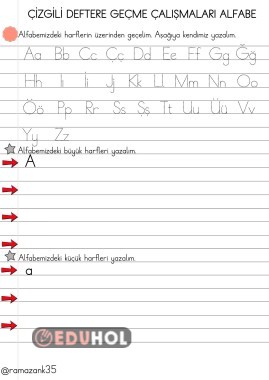 ÇİZGİLİ DEFTERE GEÇME ÇALIŞMALARI ALFABE
Alfabemizdeki harflerin üzerinden geçelim. Aşağıya kendimiz yazalım.
Aa Bb Cc Çç Dd Ee Ff Gg Ğğ
Hh Iı İi Jj Kk Ll Mm Nn Oo
Öö Pp Rr Ss Şş Tt Uu Üü Vv
Yy Zz
Alfabemizdeki büyük harfleri yazalım.
A
Alfabemizdeki küçük harfleri yazalım.
a
EDUHOL
@ramazank35